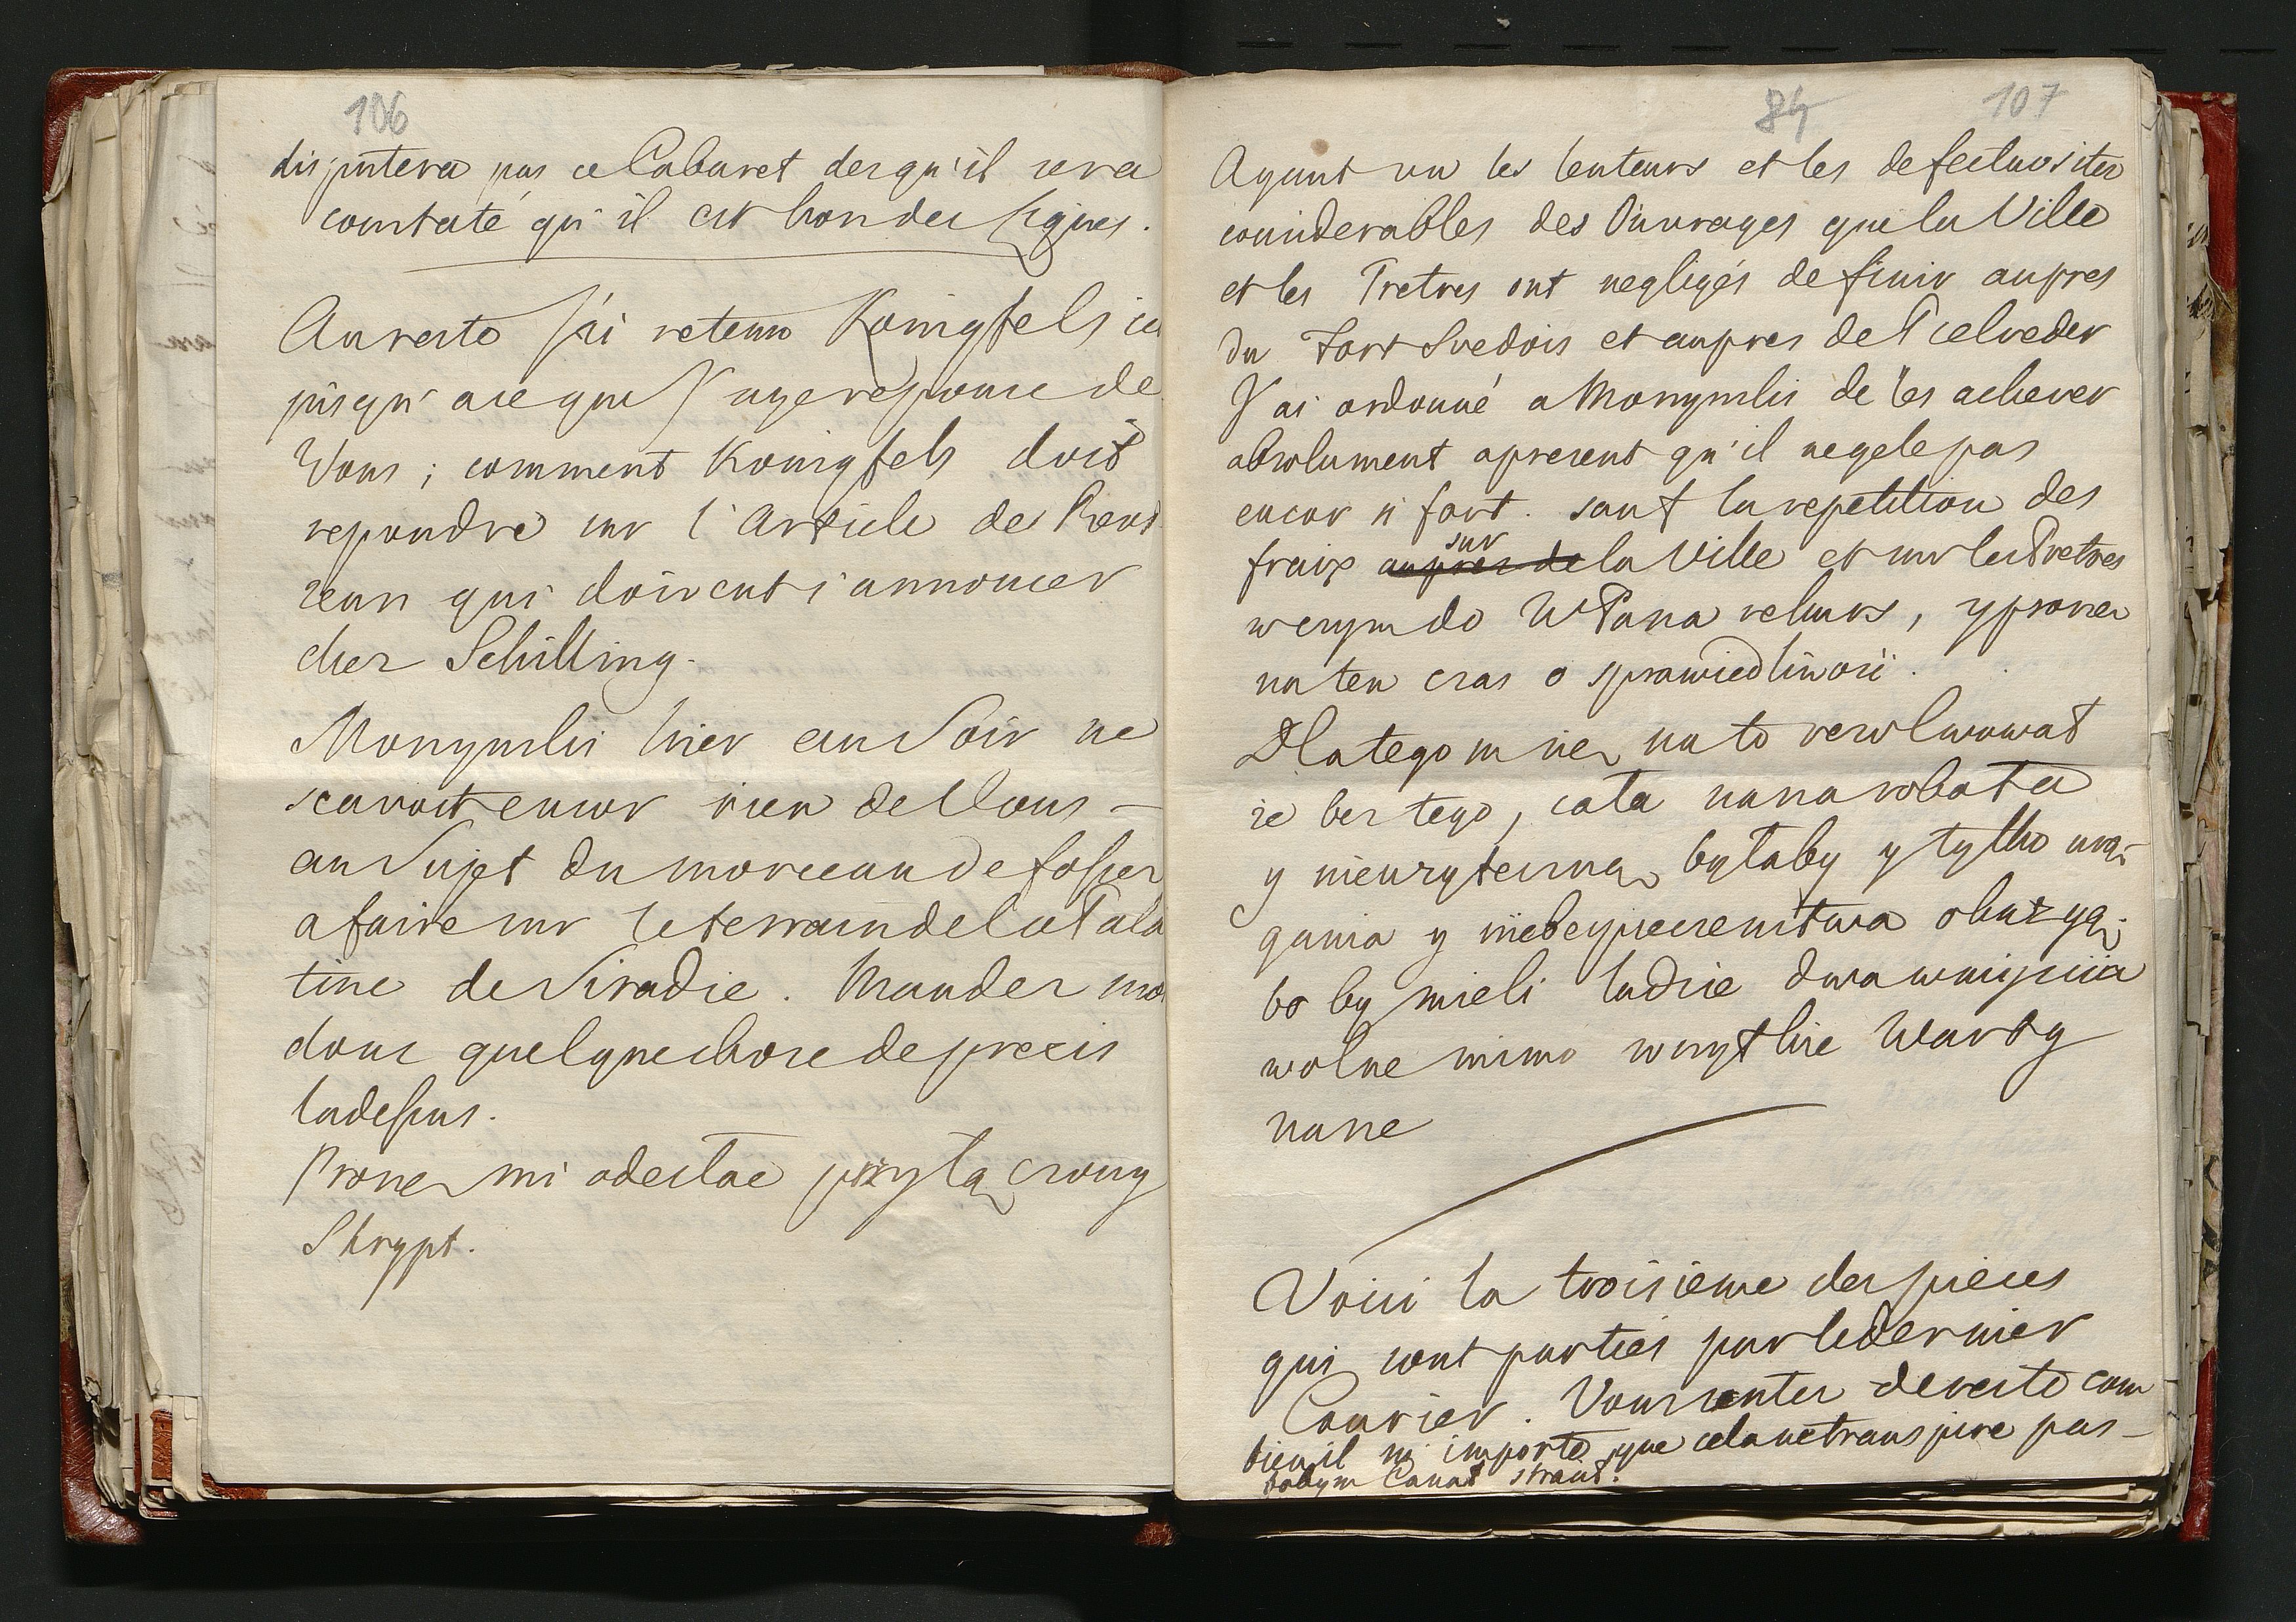 106
disputera pas ce Cabaret des qu'il sera
constaté qu'il est hors des lignes.
Au reste j'ai retenu Konigfels ici
jusqu'a ce que j'aye reponse de
Vous; comment Konigfels doit
repondre sur l'Article des Prus
siens qui doivent s'annoncer
chez Schilling.
Moszynski hier au Soir ne
scavoit encor rien de Vous –
au Sujet du morceau de fossez
a faire sur le terrain de la Pala
tine de Siradie. Mandez moi
donc quelque chose de precis
ladessus.
Proszę mi odesłac przyłączony
Skrypt.
84 107
Ayant vu les lenteurs et les defectuositez
considerables des Ouvrages que la Ville
et les Pretres ont negligés de finir aupres
du Fort Svedois et aupres de Belveder
J'ai ordonné a Moszynski de les achever
absolument apresent qu'il ne gele pas
encor si fort. sauf la repetition des
fraix aupres de sur la Ville et sur les Pretres
w czym do WPana rekurs, y proszę
na ten czas o sprawiedliwość.
Dlatego m się na to rezolwował
że bez tego, cała nasza robota
y nieuzyteczną byłaby y tylko urą-
gania y niebezpieczenstwa okazyą;
bo by mieli ludzie dwa wniścia
wolne mimo wszytkie Warty
nasze
Voici la troisieme des pieces
qui sont parties par le dernier
Courier. Vous sentez de reste com
bien il m'importe que cela ne transpire pas –